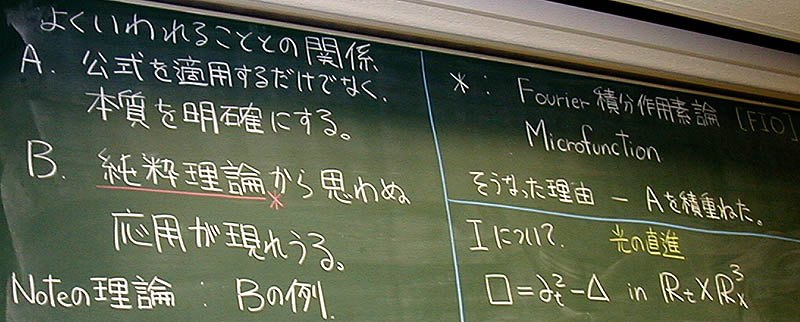 よくいわれることとの関係
A. 公式を適用するだけでなく、
本質を明確にする。
B. 純粋理論*から思わぬ
応用が現れうる。
Noteの理論 : Bの例.
* : Fourier 積分作用素論 [FIO]
Microfunction
そうなった理由 — Aを積重ねた。
Iについて. 光の直進
□=∂t²-Δ in ℝt×ℝx³